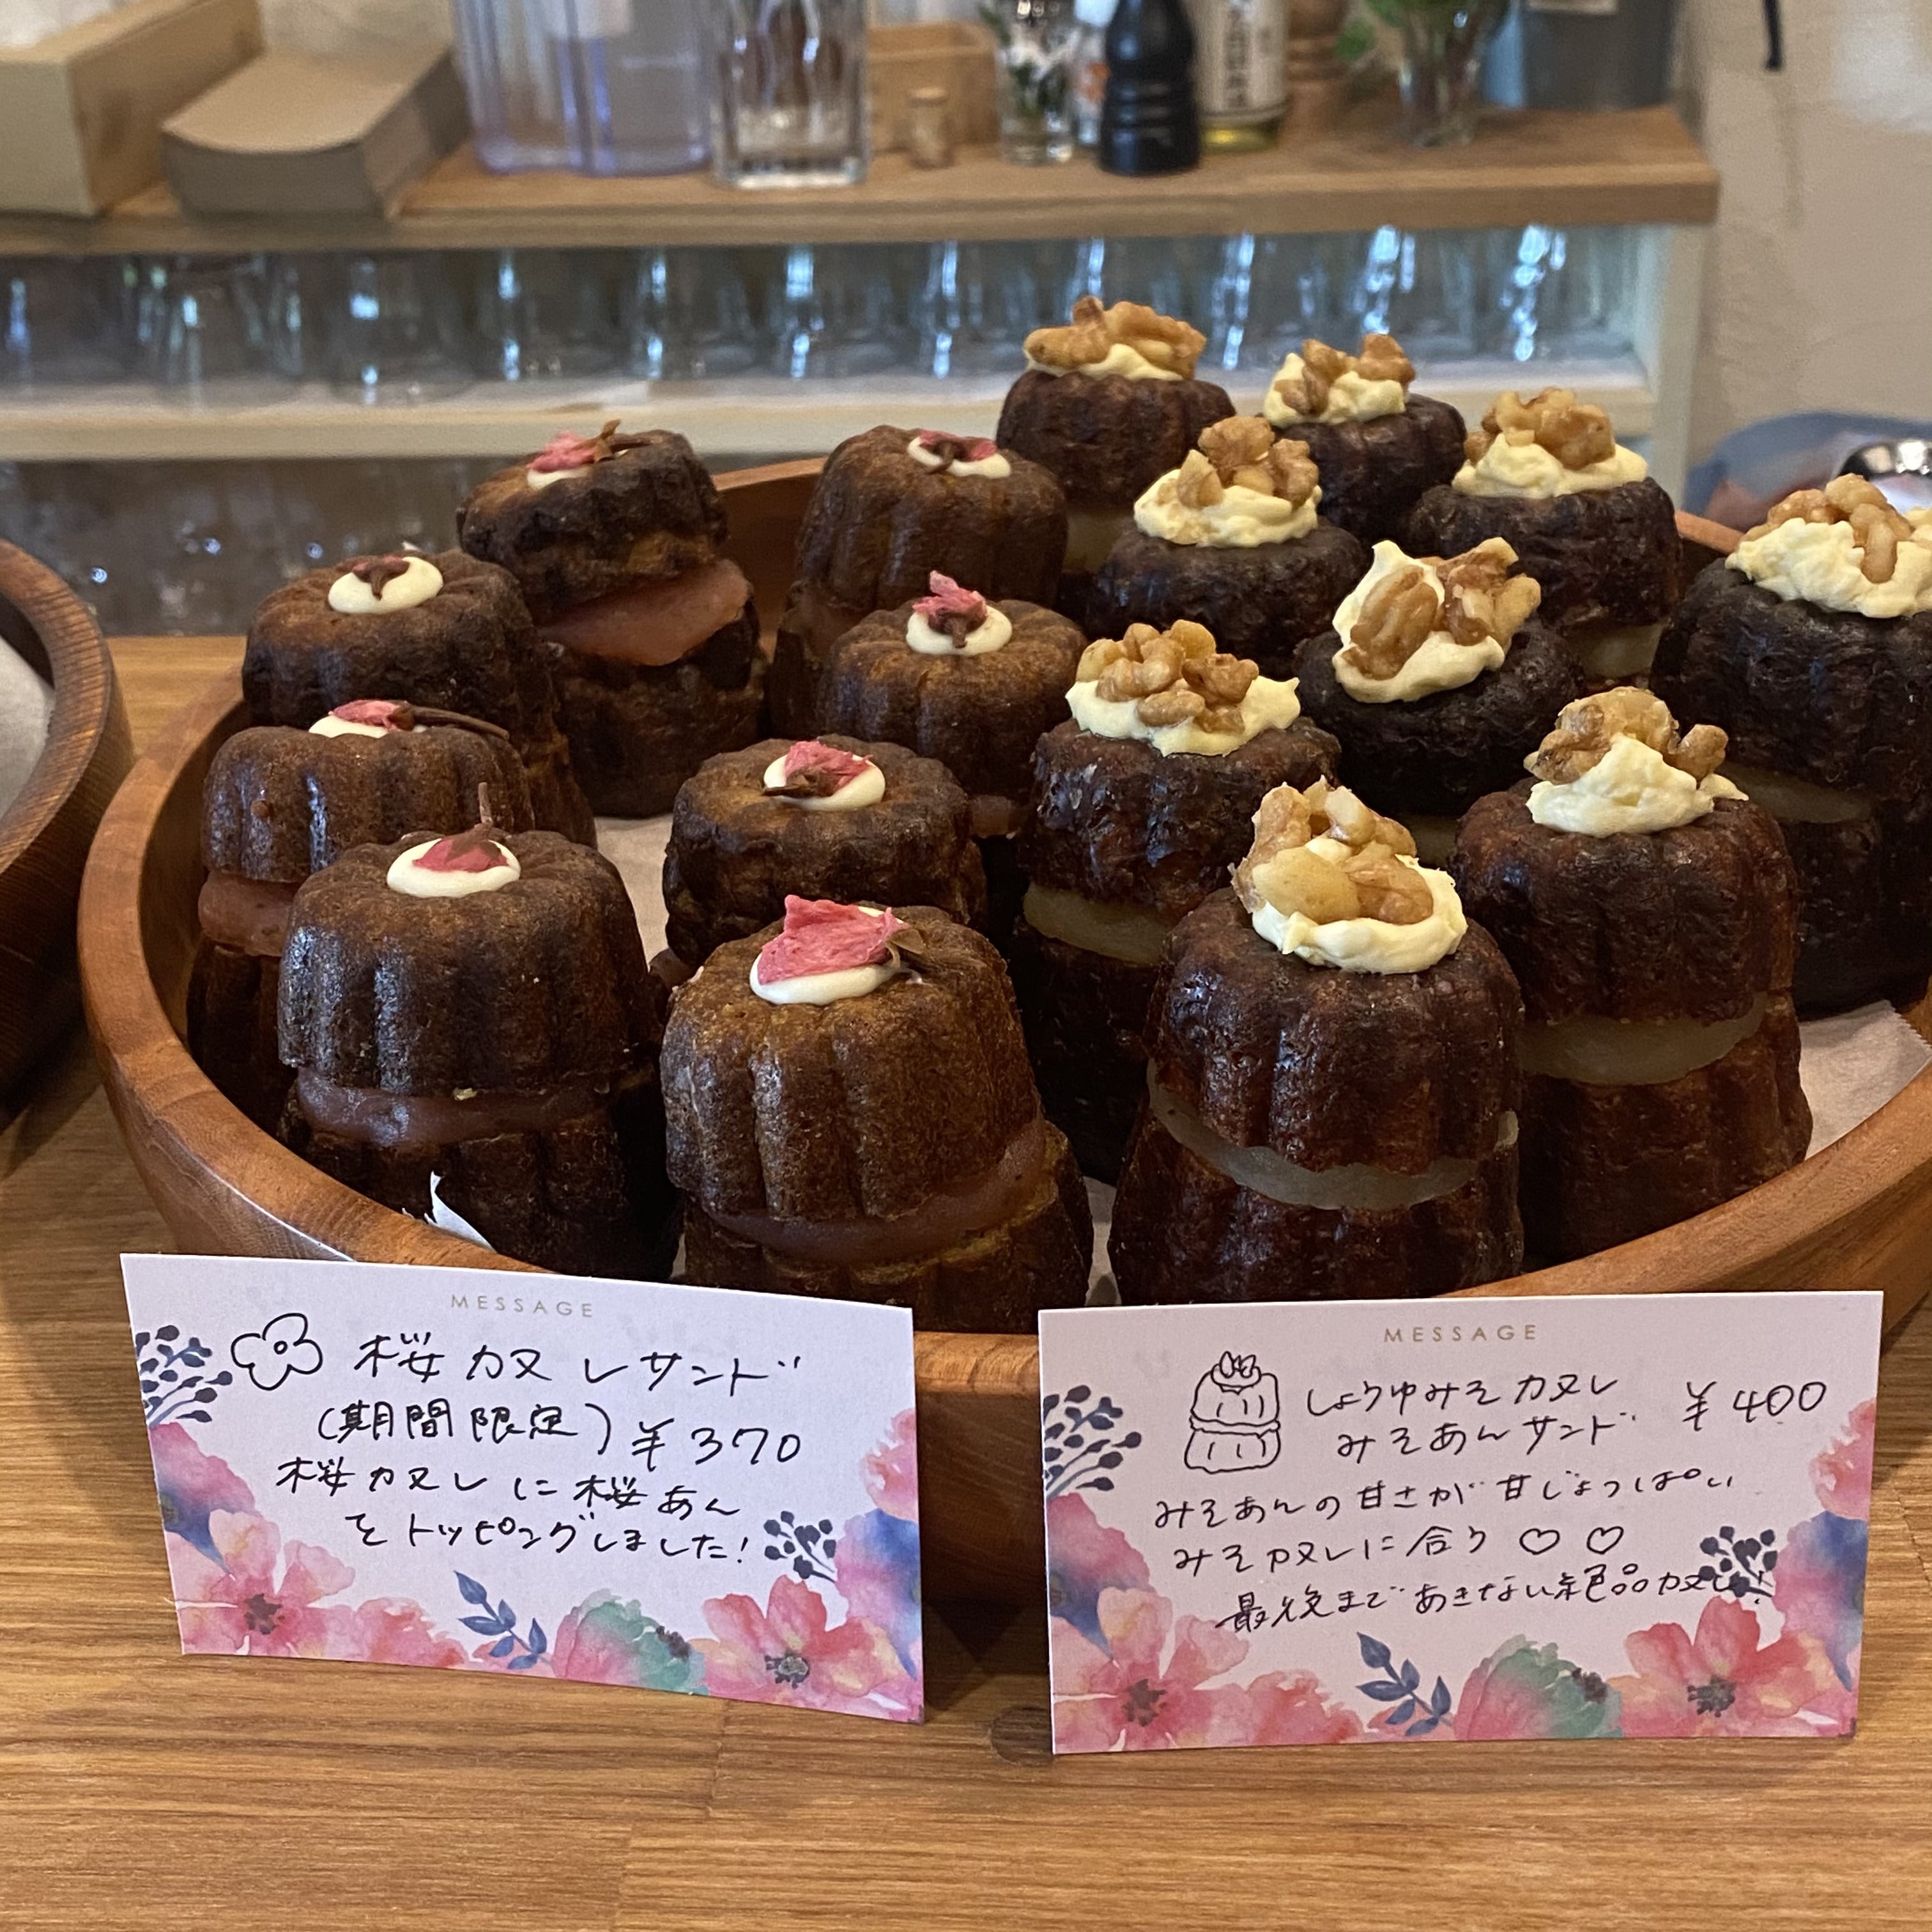 MESSAGE
桜カヌレサンド
(期間限定) ¥370
桜カヌレに桜あん
をトッピングしました!
MESSAGE
しょうゆみそカヌレ
みそあんサンド ¥400
みそあんの甘さが甘じょっぱい
みそカヌレに合う♡♡
最後まであきない絶品カヌレ!